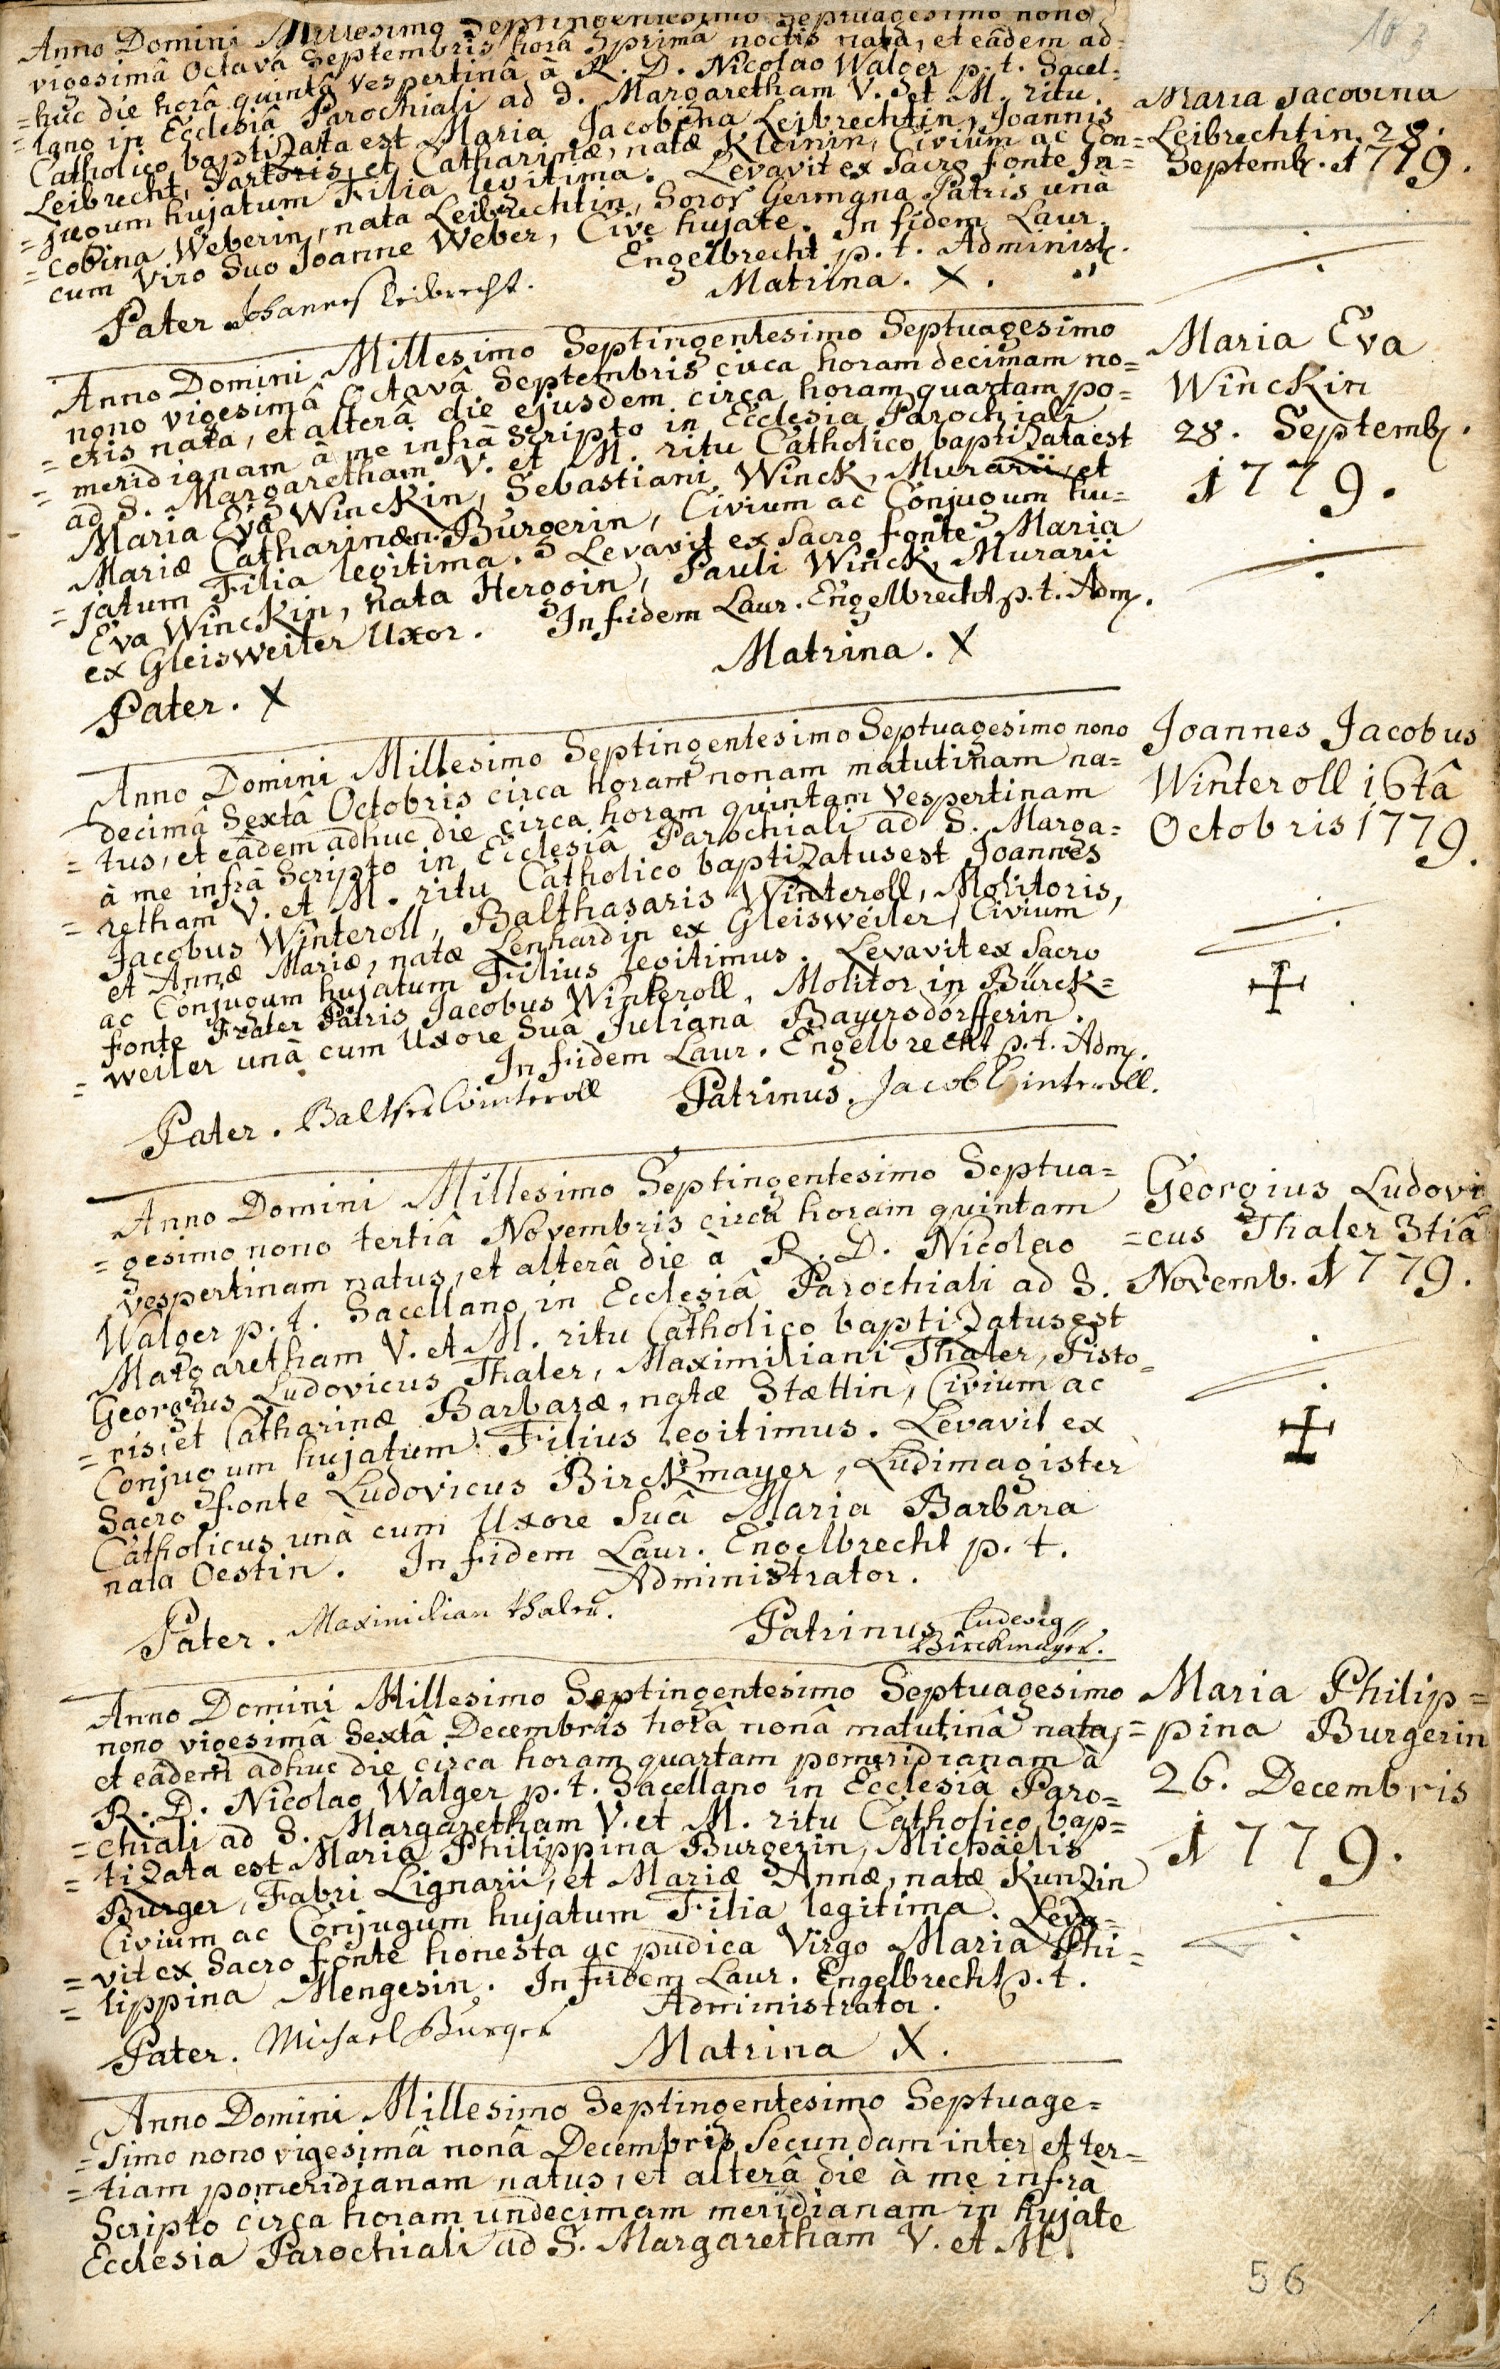 103
Anno Domini Millesimo Septingentesimo Septuagesimo nono
vigesimâ Octavâ Septembris horâ primâ noctis nata, et eâdem ad=
=huc die horâ quintâ vespertinâ à R. D. Nicolao Walger p. t. Sacel=
=lano in Ecclesiâ Parochiali ad S. Margaretham V. et M. ritu
Catholico baptizata est Maria Jacobina Leibrechtin, Joannis
Leibrecht, Sartoris, et Catharinæ, natæ Kleinin, Civium ac Con=
=jugum hujatum Filia legitima. Levavit ex Sacro fonte Ja=
=cobina Weberin, nata Leibrechtin, Soror Germana Patris unà
cum Viro Suo Joanne Weber, Cive hujate. In fidem Laur.
Engelbrecht p. t. Administ.
Pater Johannes Leibrecht.
Matrina. X.
Maria Jacobina
Leibrechtin 28.
Septemb. 1779.
Anno Domini Millesimo Septingentesimo Septuagesimo
nono vigesimâ Octavâ Septembris circa horam decimam no=
=ctis nata, et alterâ die ejusdem circa horam quartam po=
=meridianam à me infrà Scripto in Ecclesia Parochiali
ad S. Margaretham V. et M. ritu Catholico baptizata est
Maria Eva Winckin, Sebastiani Winck, Murarii, et
Mariæ Catharinæ n. Burgerin, Civium ac Conjugum hu=
=jatum Filia legitima. Levavit ex Sacro fonte Maria
Eva Winckin, nata Hergoin, Pauli Winck, Murarii
ex Gleisweiler Uxor. In fidem Laur. Engelbrecht p. t. Adm.
Matrina. X
Pater. X
Maria Eva
Winckin
28. Septemb.
1779.
Anno Domini Millesimo Septingentesimo Septuagesimo nono
decimâ Sextâ Octobris circa horam nonam matutinam na=
=tus, et eâdem adhuc die circa horam quintam Vespertinam
à me infrà Scripto in Ecclesiâ Parochiali ad S. Marga=
=retham V. et M. ritu Catholico baptizatus est Joannes
Jacobus Winteroll, Balthasaris Winteroll, Molitoris,
et Annæ Mariæ, natæ Lenhardin ex Gleisweiler, Civium
ac Conjugum hujatum Filius legitimus. Levavit ex Sacro
fonte Frater Patris Jacobus Winteroll, Molitor in Bürck=
=weiler unà cum Uxore Suâ Julianâ Bayersdörfferin.
In fidem Laur. Engelbrecht p. t. Adm.
Pater. Baltser Winteroll
Patrinus. Jacob Winteroll.
Joannes Jacobus
Winteroll 16tâ
Octobris 1779.
Anno Domini Millesimo Septingentesimo Septua=
=gesimo nono tertiâ Novembris circa horam quintam
Vespertinam natus, et alterâ die à R. D. Nicolao
Walger p. t. Sacellano in Ecclesiâ Parochiali ad S.
Margaretham V. et M. ritu Catholico baptizatus est
Georgius Ludovicus Thaler, Maximiliani Thaler, Pisto=
=ris, et Catharinæ Barbaræ, natæ Stættin, Civium ac
Conjugum hujatum Filius legitimus. Levavit ex
Sacro fonte Ludovicus Birckmayer, Ludimagister
Catholicus unà cum Uxore Suâ Maria Barbara
nata Oestin. In fidem Laur. Engelbrecht p. t.
Administrator.
Pater. Maximilian Thaler.
Patrinus Ludewig
Birckmayer.
Georgius Ludovi
=cus Thaler 3tiâ
Novemb. 1779.
Anno Domini Millesimo Septingentesimo Septuagesimo
nono vigesimâ Sextâ Decembris horâ nonâ matutinâ nata,
et eâdem adhuc die circa horam quartam pomeridianam à
R. D. Nicolao Walger p. t. Sacellano in Ecclesiâ Paro=
=chiali ad S. Margaretham V. et M. ritu Catholico bap=
=tizata est Maria Philippina Burgerin, Michaëlis
Burger, Fabri Lignarii, et Mariæ Annæ, natæ Kunzin
Civium ac Conjugum hujatum Filia legitima. Leva=
=vit ex Sacro fonte honesta ac pudica Virgo Maria Phi=
=lippina Mengesin. In fidem Laur. Engelbrecht p. t.
Administrator.
Pater. Michael Burger
Matrina X.
Maria Philip=
=pina Burgerin
26. Decembris
1779.
Anno Domini Millesimo Septingentesimo Septuage=
=simo nono vigesimâ nonâ Decembris Secundam inter et ter=
=tiam pomeridianam natus, et alterâ die à me infrà
Scripto circa horam undecimam meridianam in hujate
Ecclesia Parochiali ad S. Margaretham V. et M.
56